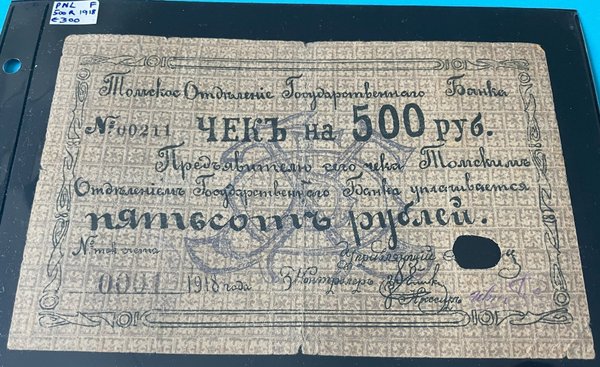 PNL F
500R 1918
€300
Томское Отдѣленіе Государственнаго Банка
№ 00211 ЧЕКЪ на 500 руб.
Предъявителю сего чека Томскимъ
Отдѣленіемъ Государственнаго Банка уплачивается
пятьсотъ рублей.
№ тек. счета
Управляющій
0001 1918 года
Контролеръ
Кассиръ